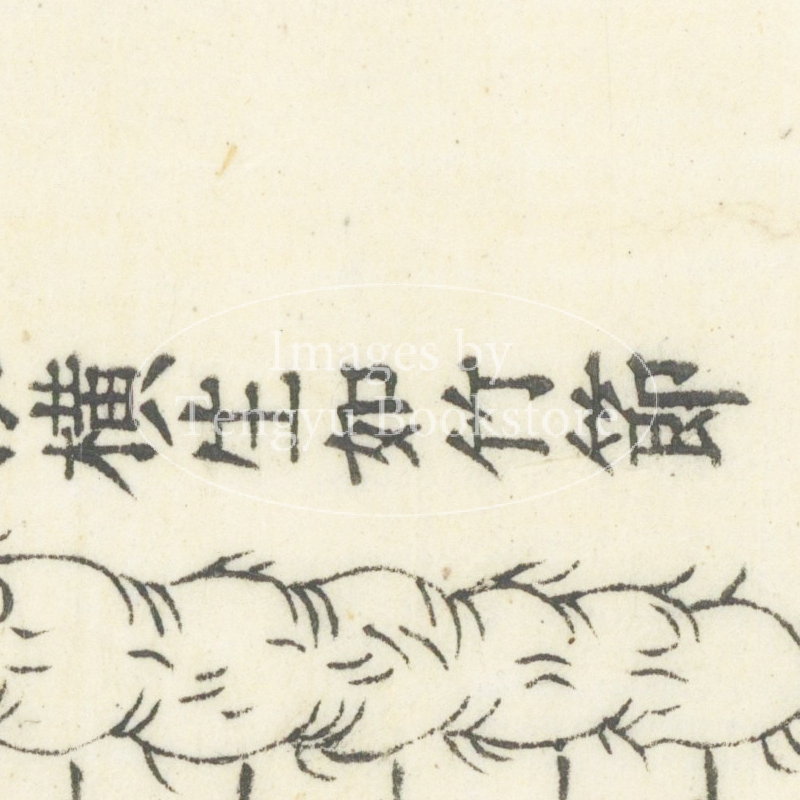 橫生如竹節
Images by
Tengyu Bookstore